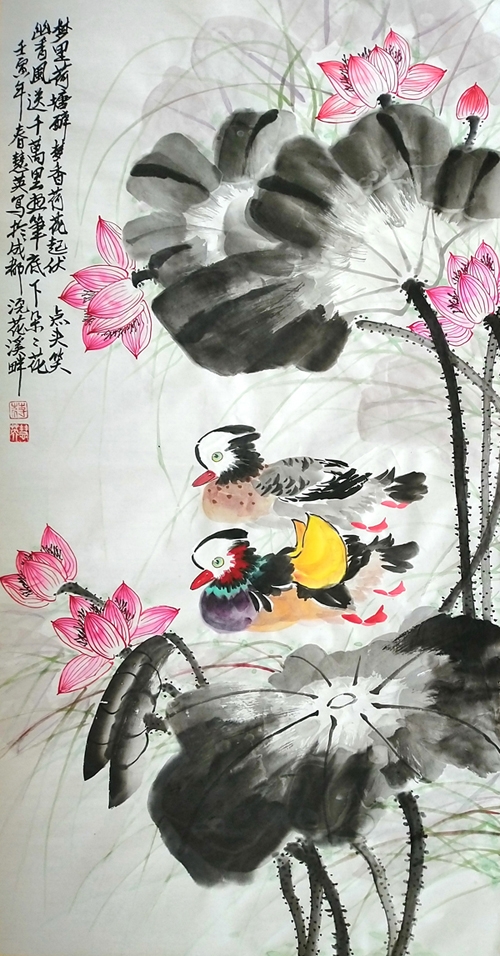 梦里荷塘醉梦香荷花起伏 点头笑
幽香風送千萬里筆底下朵〻花
壬寅年春慧英写於成都浣花溪畔